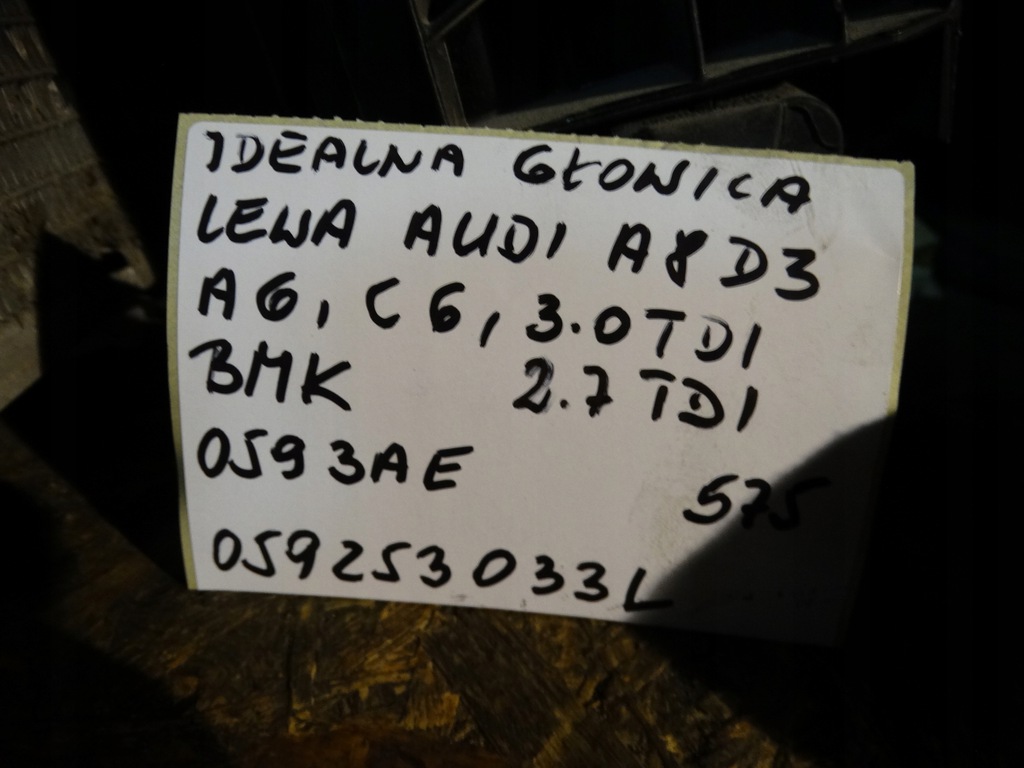 IDEALNA GŁOWICA
LEWA AUDI A8 D3
A6, C6, 3.0 TDI
BMK 2.7 TDI
0593AE
575
059253033L